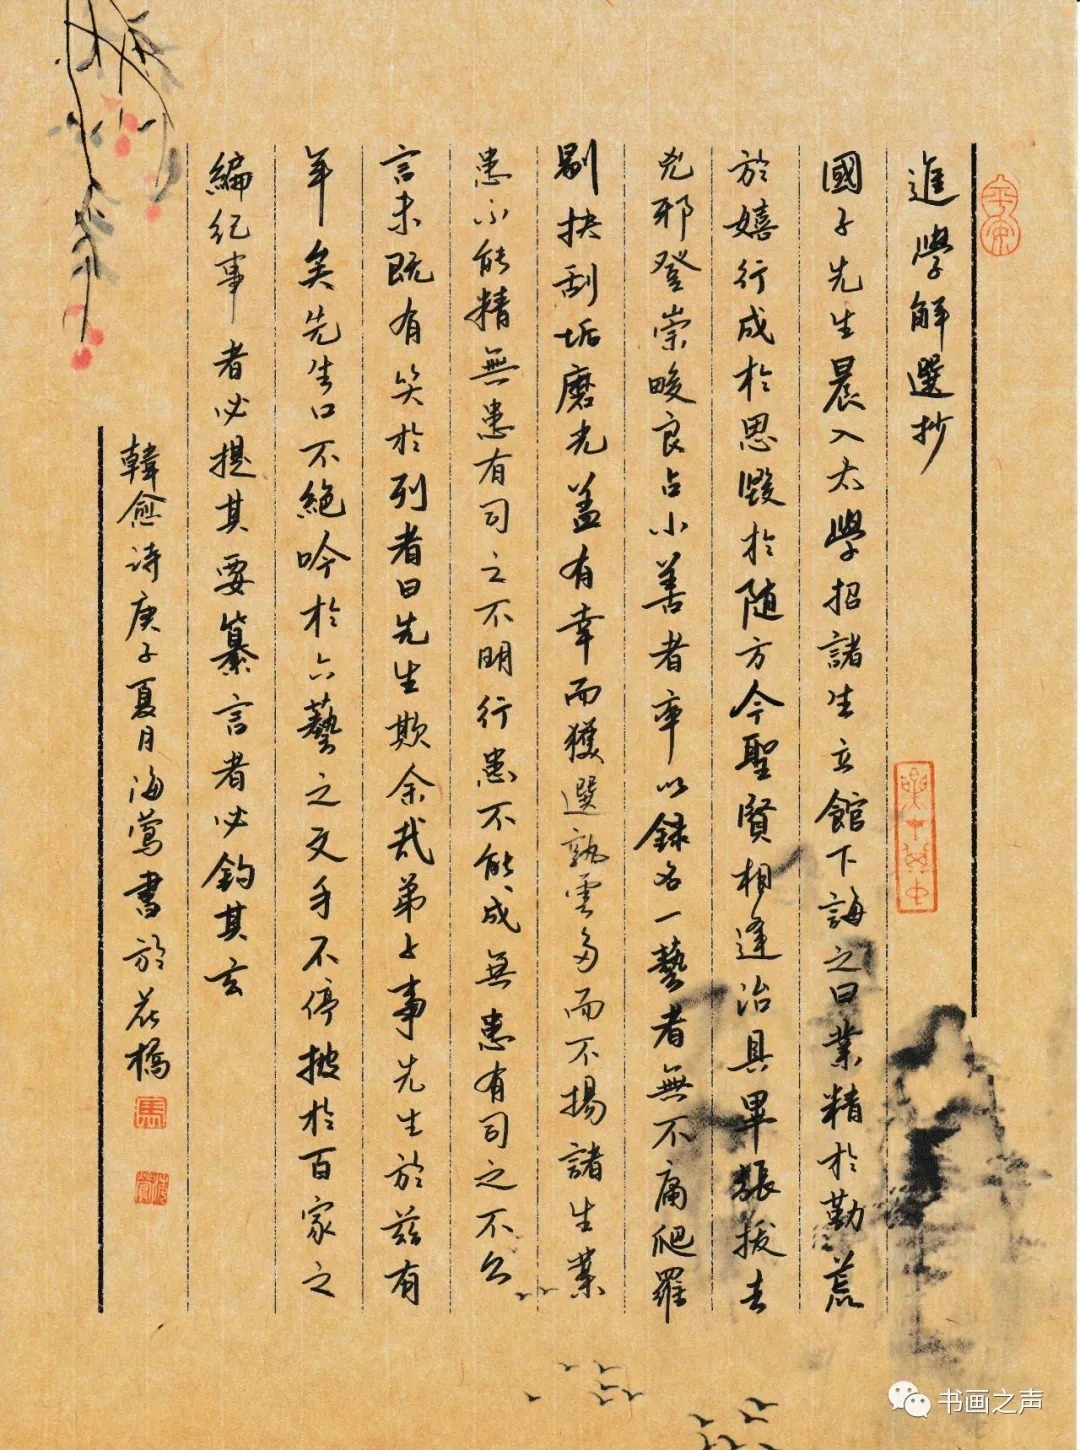 進學解選抄
國子先生晨入太學招諸生立館下誨之曰業精於勤荒
於嬉行成於思毀於随方今聖賢相逢治具畢張拔去
兇邪登崇畯良占小善者率以録名一藝者無不庸爬羅
剔抉刮垢磨光盖有幸而獲選孰雲多而不揚諸生業
患不能精無患有司之不明行患不能成無患有司之不公
言未既有笑於列者曰先生欺余哉弟子事先生於兹有
年矣先生口不絶吟於六藝之文手不停披於百家之
編纪事者必提其要纂言者必鈎其玄
韓愈诗庚子夏月海莺書於花橋
平安
書画之声